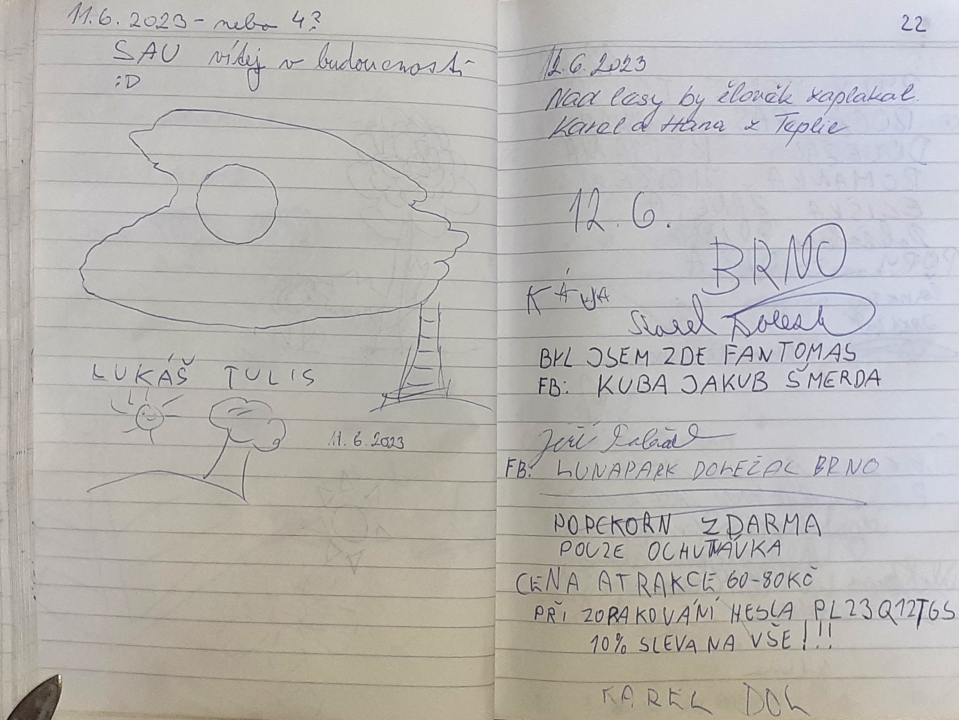 11.6.2023 - nebo 4?
SAU vítej v budoucnosti
:D
LUKÁŠ TULIS
11.6.2023
22
12.6.2023
Nad lesy by člověk zaplakal.
Karel a Hana z Teplic
12.6.
BRNO
KÁJA
Karel
BYL JSEM ZDE FANTOMAS
FB: KUBA JAKUB ŠMERDA
Jiří
FB: LUNAPARK DOLEŽAL BRNO
POPEKORN ZDARMA
POUZE OCHUTÁVKA
CENA ATRAKCE 60-80KČ
PŘI ZOPAKOVÁNÍ HESLA PL23Q12TGS
10% SLEVA NA VŠE!!!
KAREL DOL